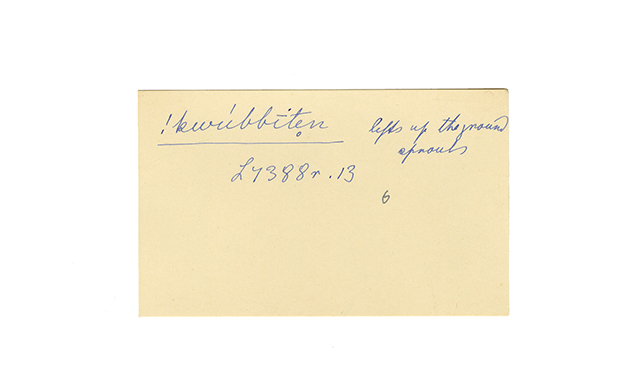 !kwúbbītẹn lifts up the ground
sprouts
L7388r.13
6